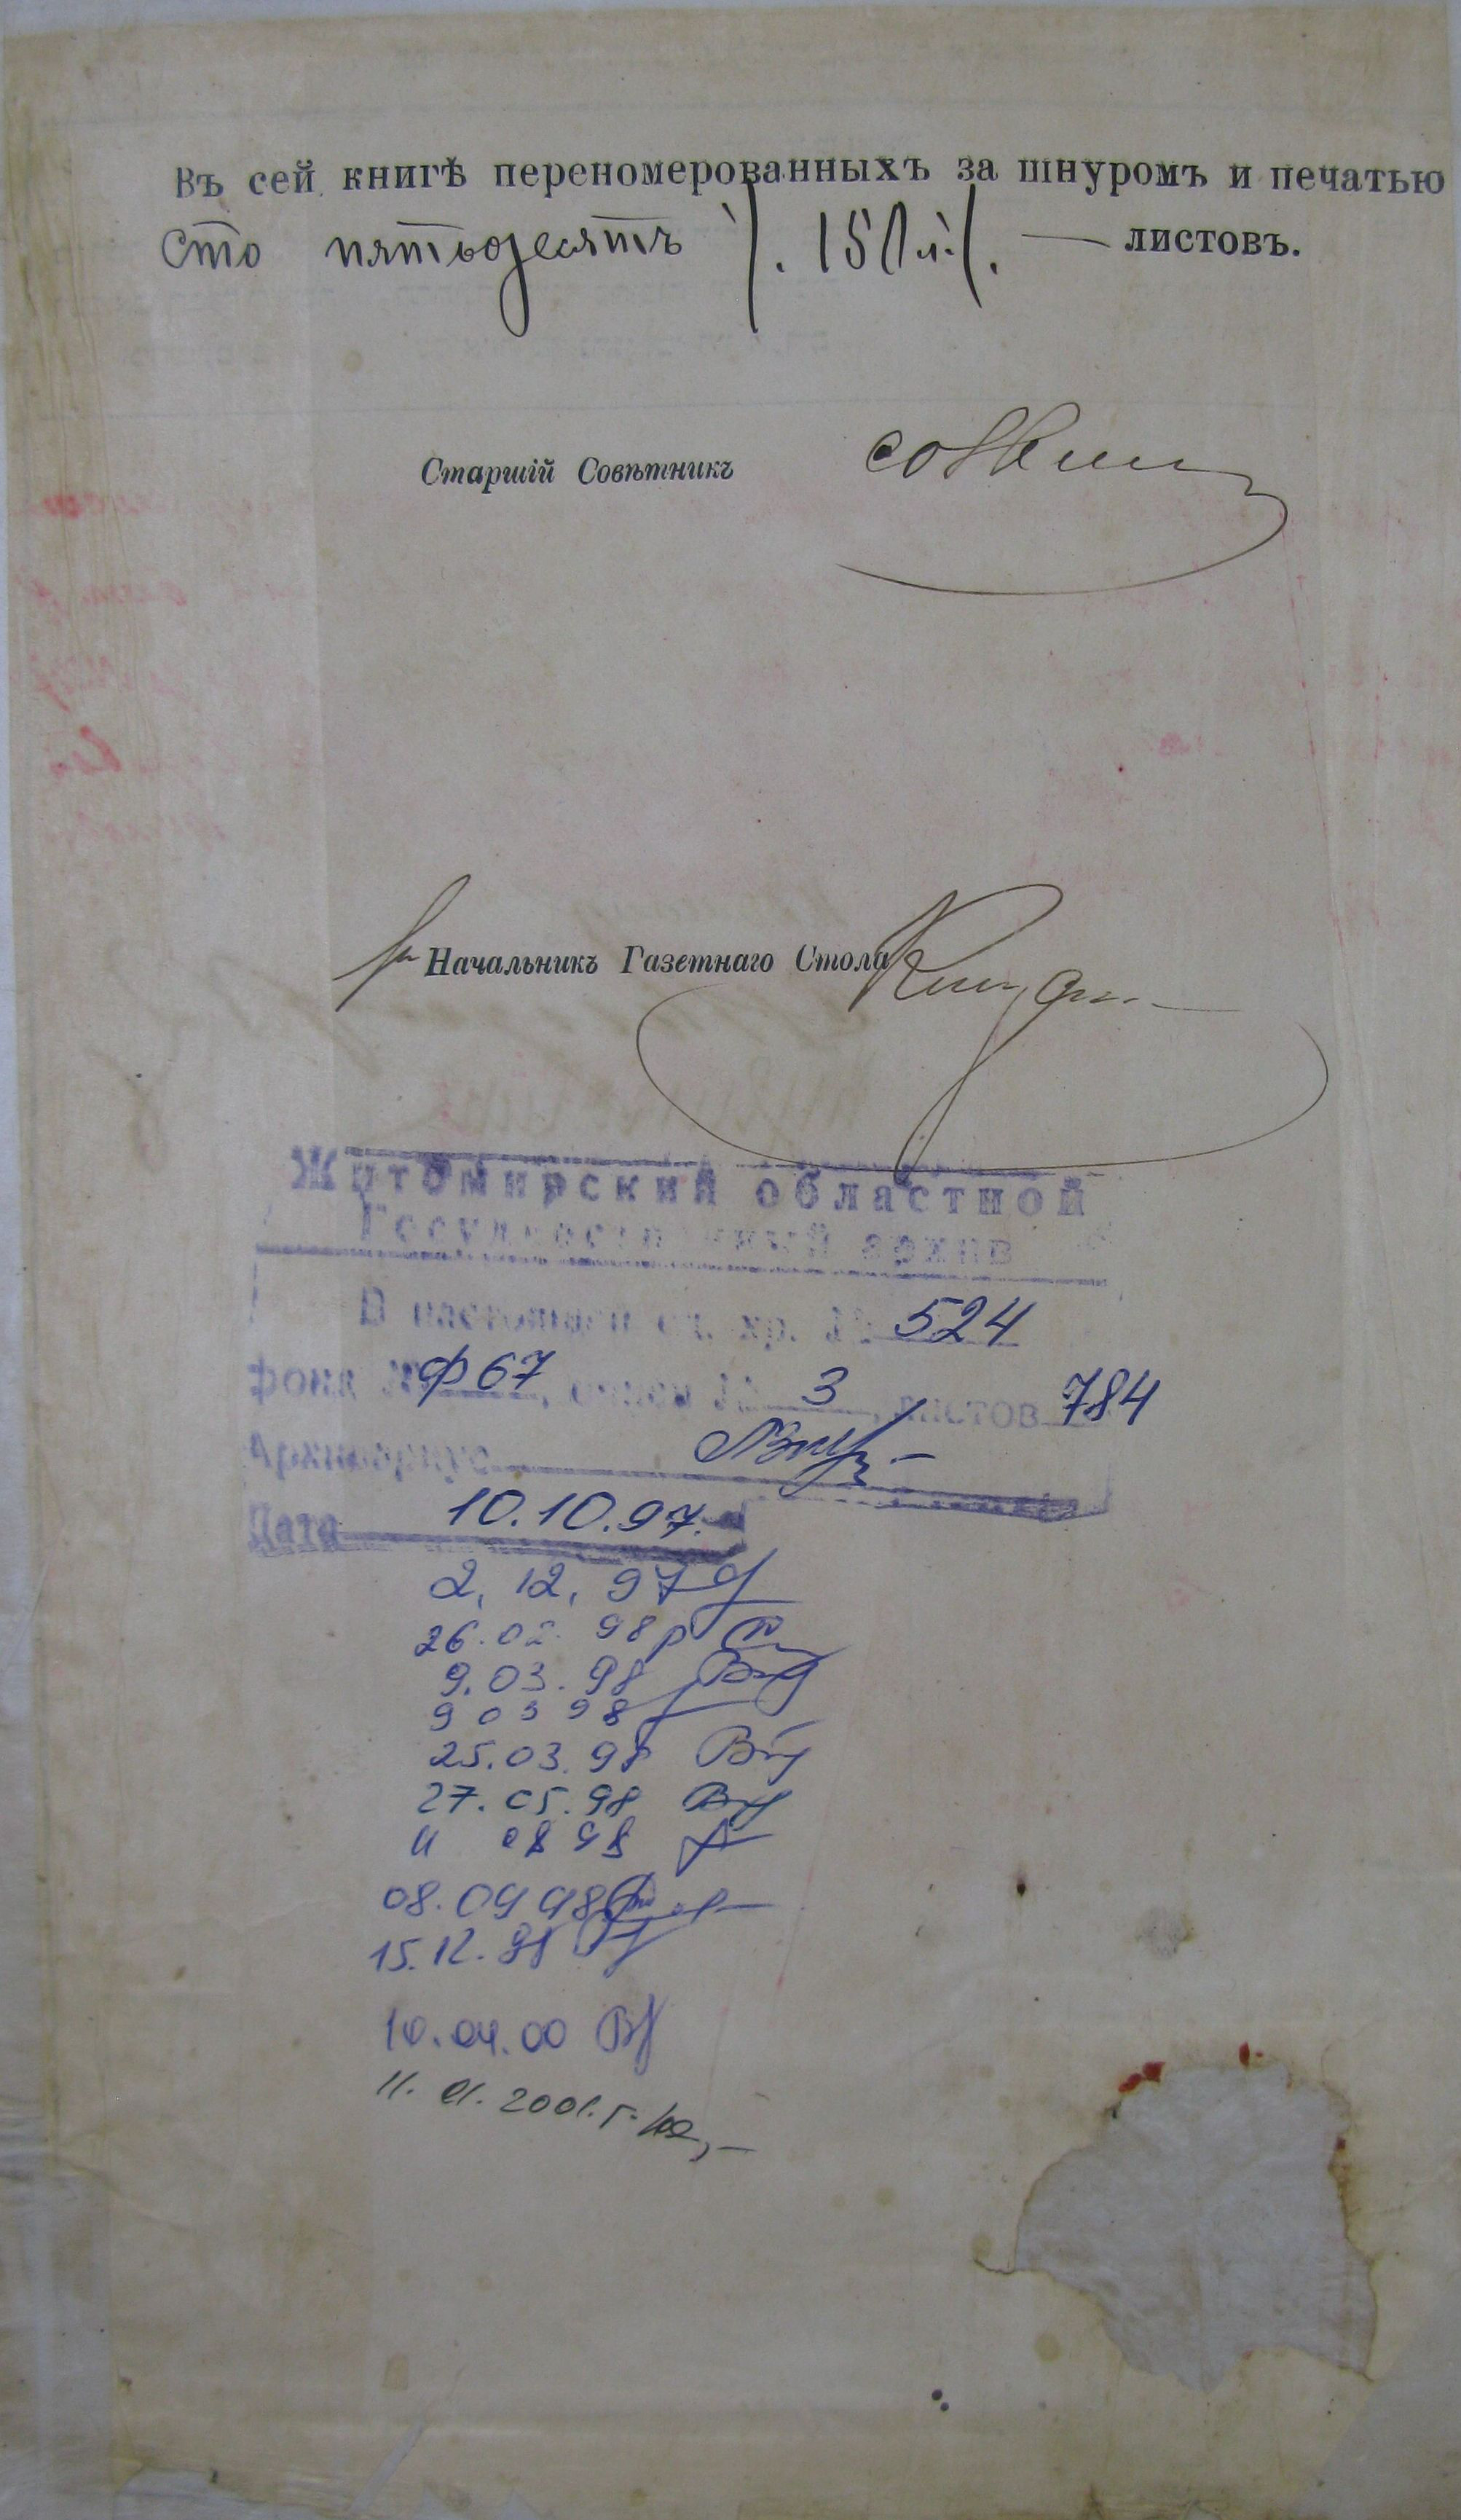 Въ сей книгѣ переномерованныхъ за шнуромъ и печатью
Сто пятьдесятъ /. 150 л. /. — листовъ.
Старшій Совѣтникъ
Начальникъ Газетнаго Стола
Житомирский областной
Государственный архив
В настоящей ед. хр. № 524
фонд № Ф67, описи № 3, листов 784
Архивариус
Дата 10.10.97.
2.12.97
26.02.98р
9.03.98
9 03 98
25.03.98
27.05.98
11 08 98
08.09 98
15.12.98
10.04.00
11.01.2001.г.